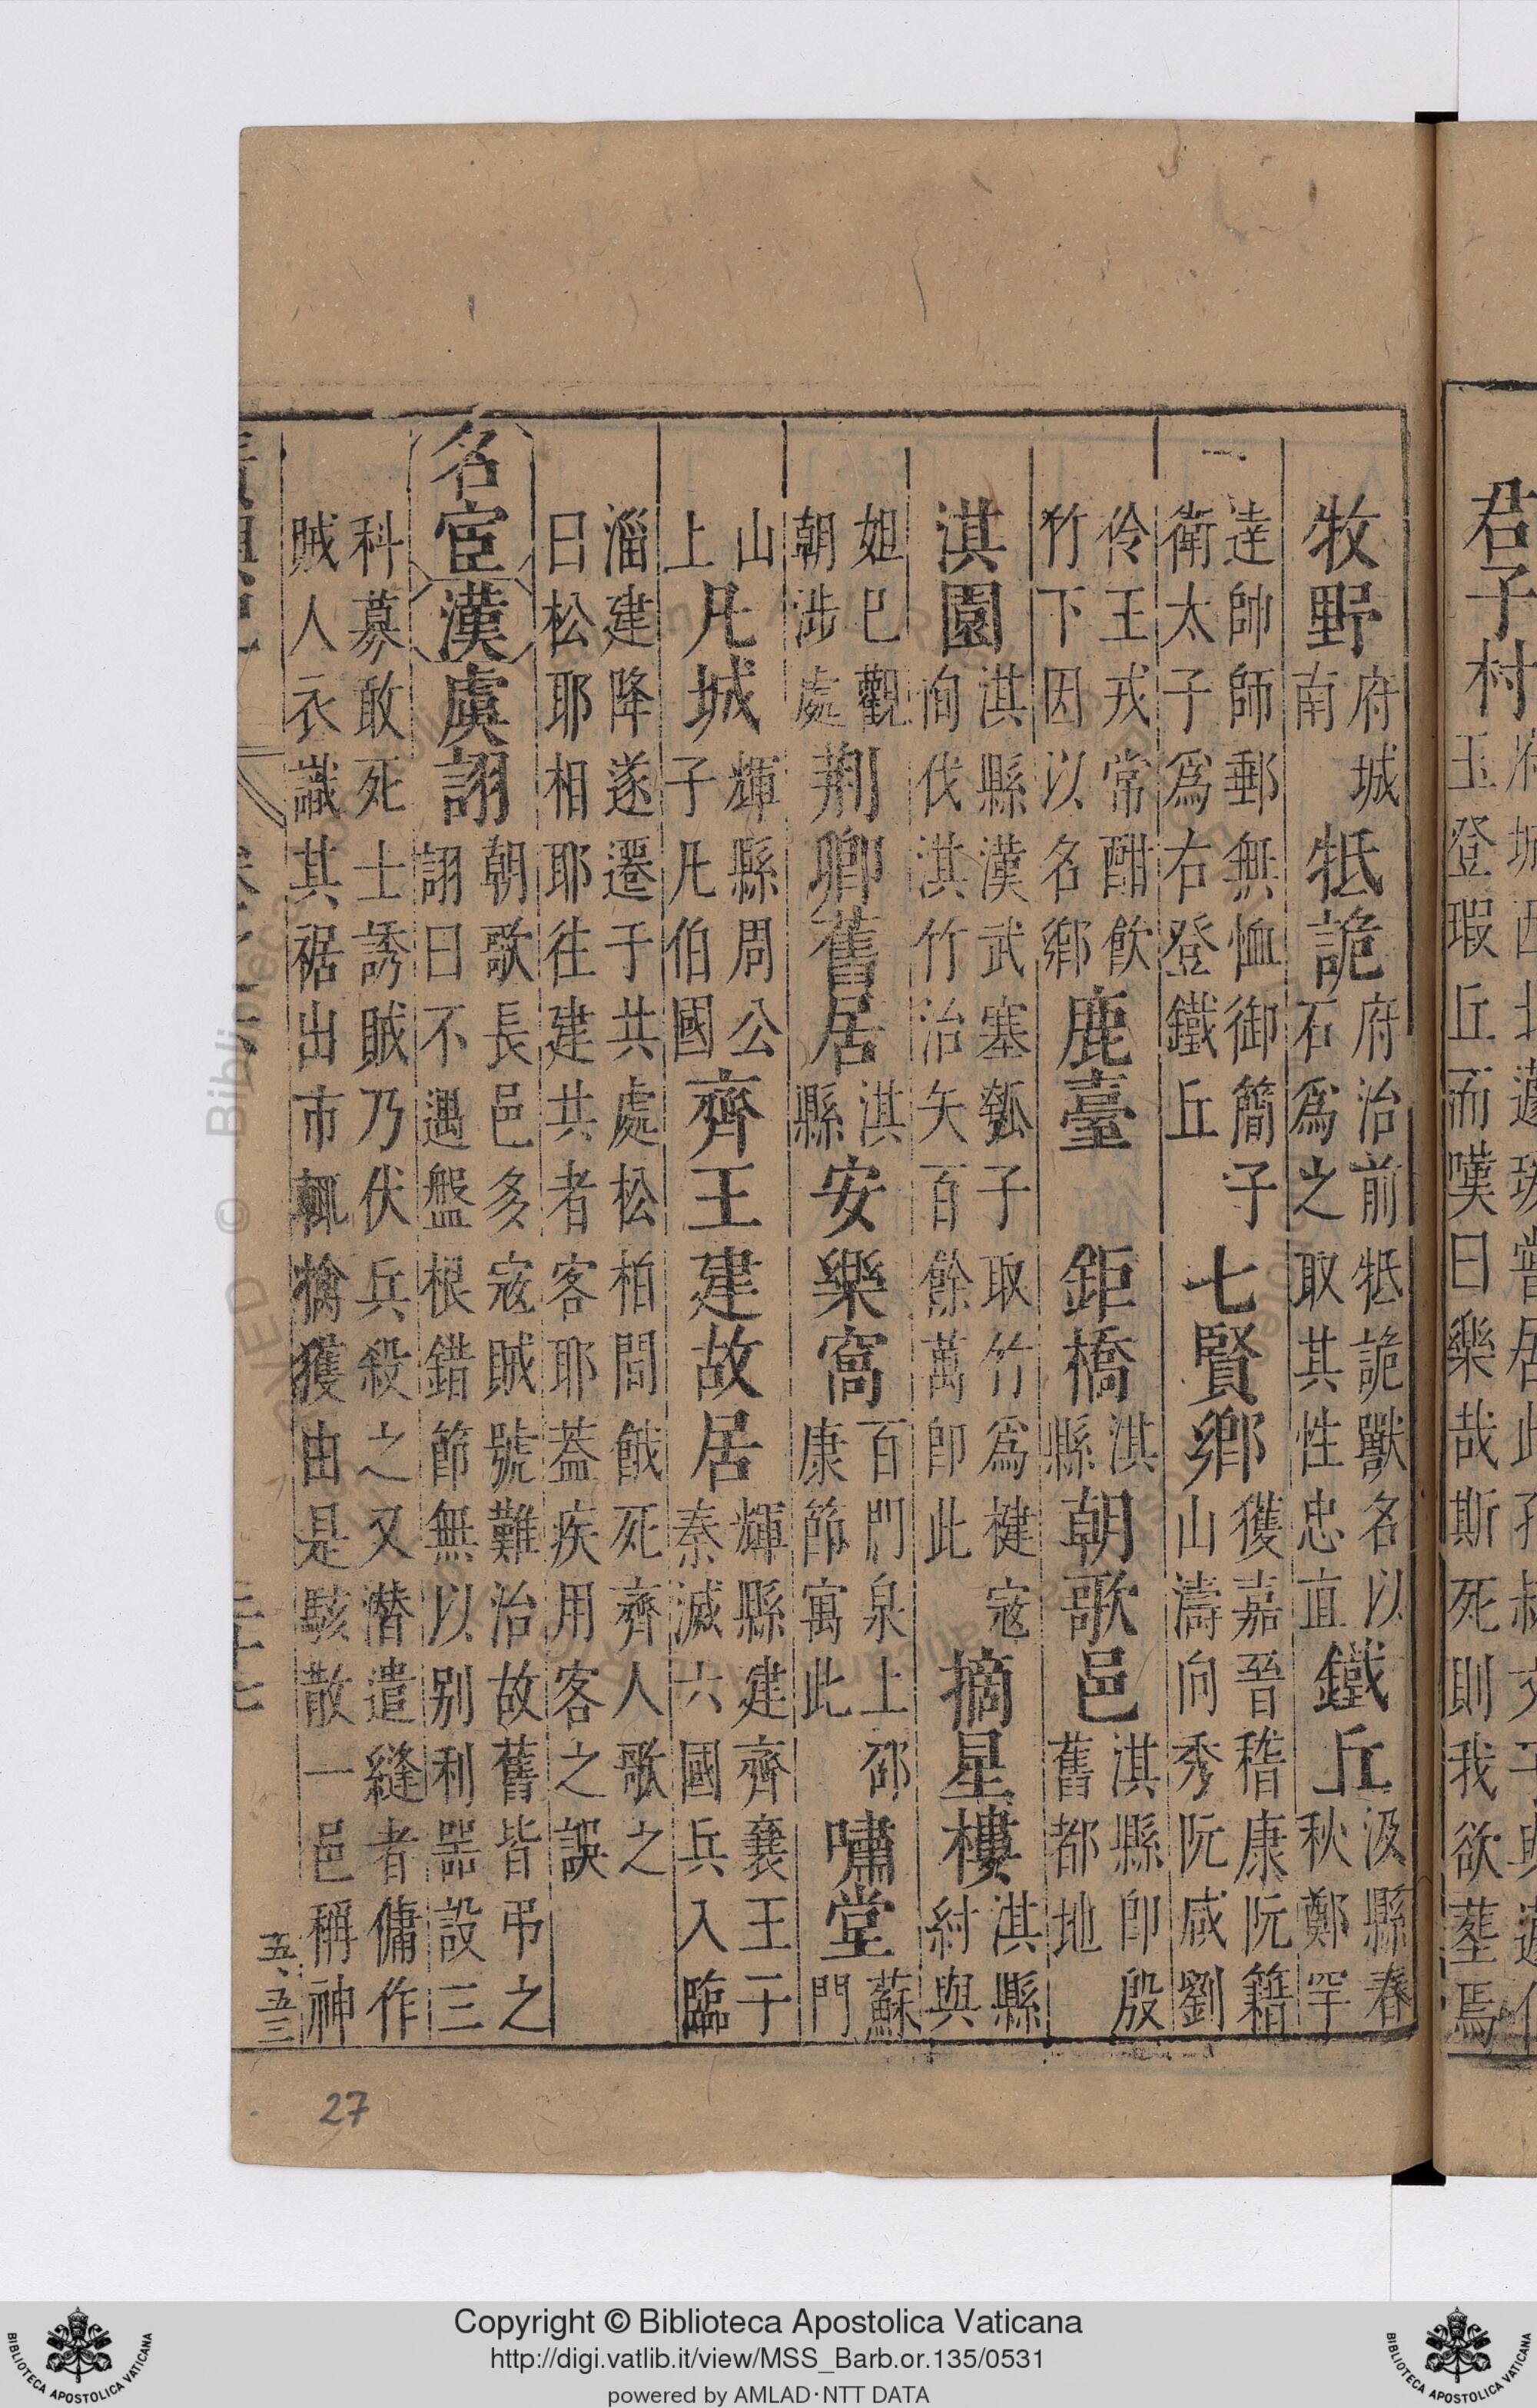 君子村
玉登瑕丘而嘆曰樂哉斯死則我欲塟焉
牧野
府城
南
牴詭
府治前牴詭獸名以
石爲之取其性忠直
鐵丘
汲縣春
秋鄭罕
達帥師郵無恤御簡子
衛太子爲右登鐵丘
七賢鄉
獲嘉晉稽康阮籍
山濤向秀阮咸劉
伶王戎常酣飲
竹下因以名鄉
鹿臺
鉅橋
淇
縣
朝歌邑
淇縣卽殷
舊都地
淇園
淇縣漢武塞瓠子取竹爲楗寇
恂伐淇竹治矢百餘萬卽此
摘星樓
淇縣
紂與
妲己觀
朝涉處
荆卿舊居
淇
縣
安樂窩
百門泉上邵
康節寓此
嘯堂
蘇
門
山
上
凡城
輝縣周公
子凡伯國
齊王建故居
輝縣建齊襄王于
秦滅六國兵入臨
淄建降遂遷于共處松柏間餓死齊人歌之
曰松耶相耶徃建共者客耶蓋疾用客之誤
名宦
漢
虞詡
朝歌長邑多寇賊號難治故舊皆弔之
詡曰不遇盤根錯節無以别利器設三
科募敢死士誘賊乃伏兵殺之又潛遣縫者傭作
賊人衣識其裾出市輒擒獲由是駭散一邑稱神
五、五三
27
Copyright © Biblioteca Apostolica Vaticana
http://digi.vatlib.it/view/MSS_Barb.or.135/0531
powered by AMLAD·NTT DATA
BIBLIOTECA APOSTOLICA VATICANA
BIBLIOTECA APOSTOLICA VATICANA